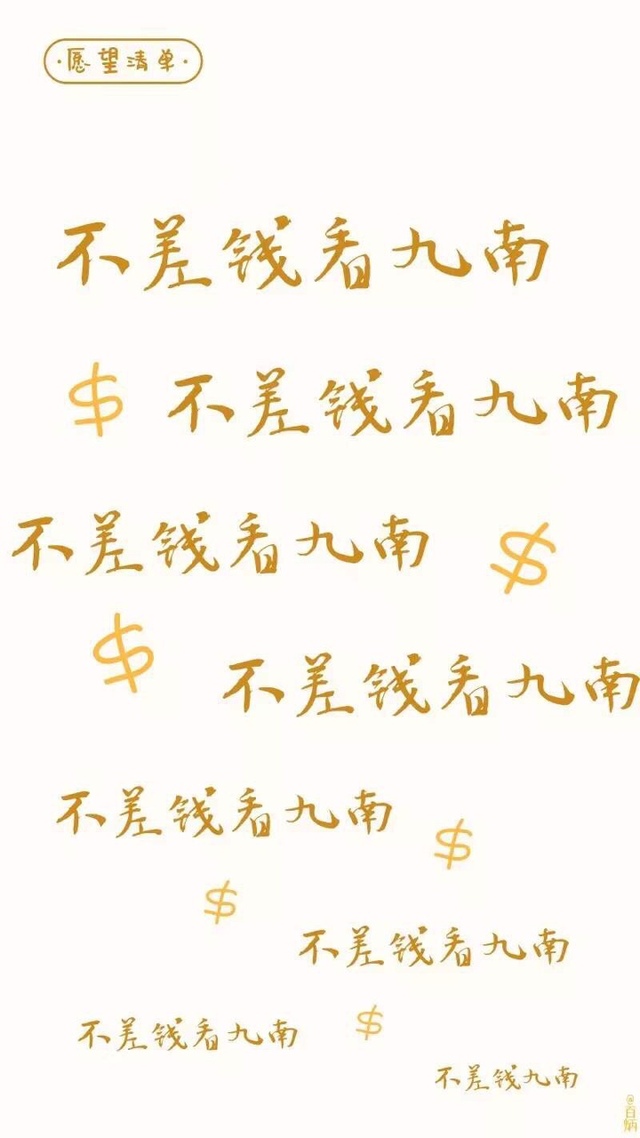 ·愿望清单·
不差钱看九南
$ 不差钱看九南
不差钱看九南 $
$ 不差钱看九南
不差钱看九南
$
$
不差钱看九南
不差钱看九南 $
不差钱九南